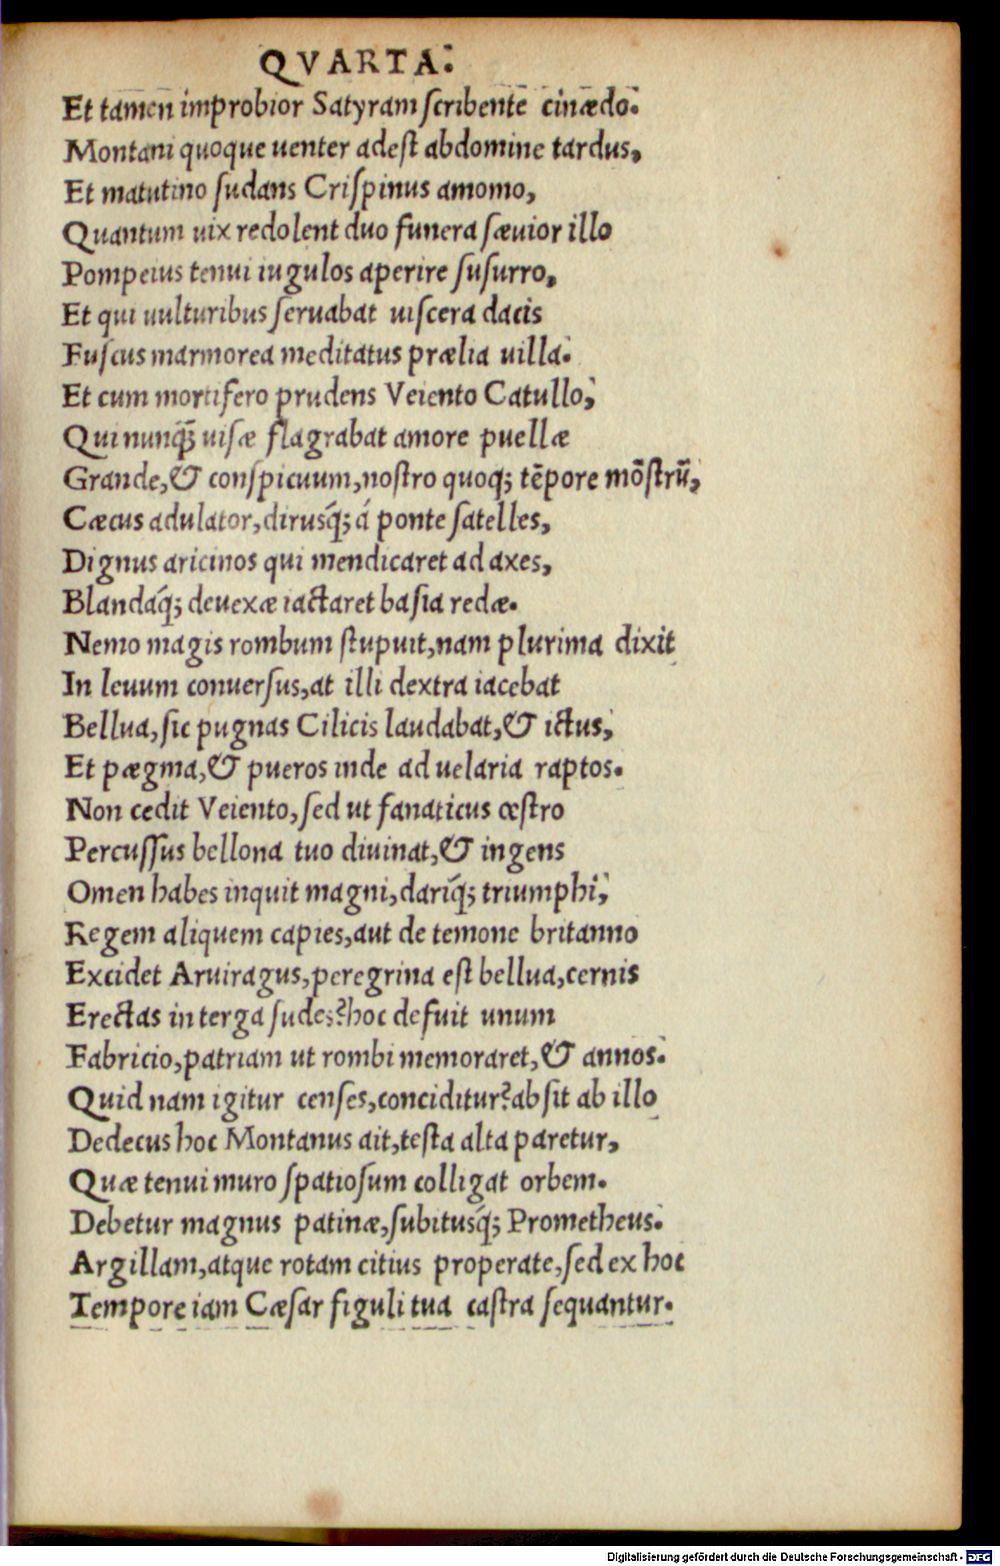 QVARTA.
Et tamen improbior Satyram ſcribente cinædo.
Montani quoque uenter adeſt abdomine tardus,
Et matutino ſudans Criſpinus amomo,
Quantum uix redolent duo funera ſæuior illo
Pompeius tenui iugulos aperire ſuſurro,
Et qui uulturibus ſeruabat uiſcera dacis
Fuſcus marmorea meditatus prælia uilla.
Et cum mortifero prudens Veiento Catullo,
Qui nunq̃; uiſæ flagrabat amore puellæ
Grande, & conſpicuum, noſtro quoq; tẽpore mõſtrũ,
Cæcus adulator, dirusq́; á ponte ſatelles,
Dignus aricinos qui mendicaret ad axes,
Blandaq́; deuexæ iactaret baſia redæ.
Nemo magis rombum ſtupuit, nam plurima dixit
In leuum conuerſus, at illi dextra iacebat
Bellua, ſic pugnas Cilicis laudabat, & ictus,
Et pægma, & pueros inde ad uelaria raptos.
Non cedit Veiento, ſed ut fanaticus œſtro
Percuſſus bellona tuo diuinat, & ingens
Omen habes inquit magni, dariq́; triumphi,
Regem aliquem capies, aut de temone britanno
Excidet Aruiragus, peregrina eſt bellua, cernis
Erectas in terga ſudes? hoc defuit unum
Fabricio, patriam ut rombi memoraret, & annos.
Quid nam igitur cenſes, conciditur? abſit ab illo
Dedecus hoc Montanus ait, teſta alta paretur,
Quæ tenui muro ſpatioſum colligat orbem.
Debetur magnus patinæ, ſubitusq́; Prometheus.
Argillam, atque rotam citius properate, ſed ex hoc
Tempore iam Cæſar figuli tua caſtra ſequantur.
Digitalisierung gefördert durch die Deutsche Forschungsgemeinschaft - DFG